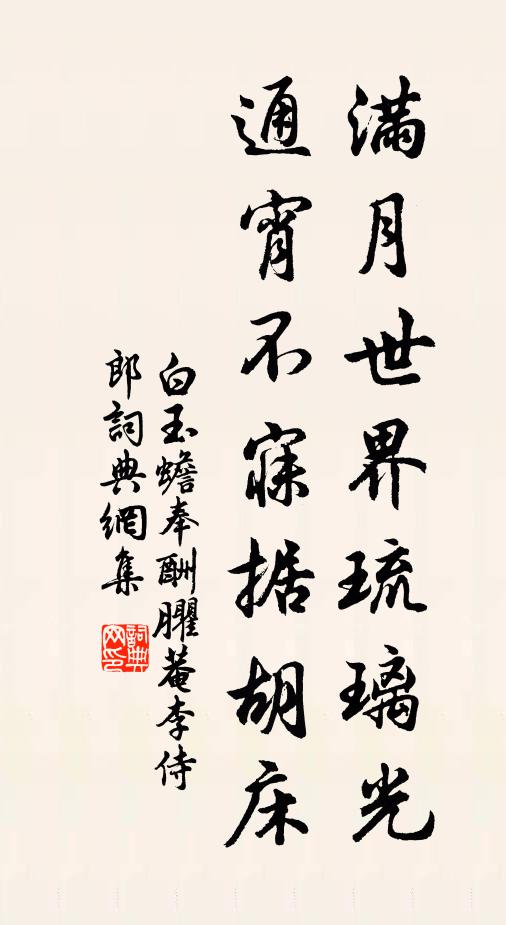 滿月世界琉璃光
通宵不寐據胡床
白玉蟾奉酬臞菴李侍
郎詞典網集
詞典网印